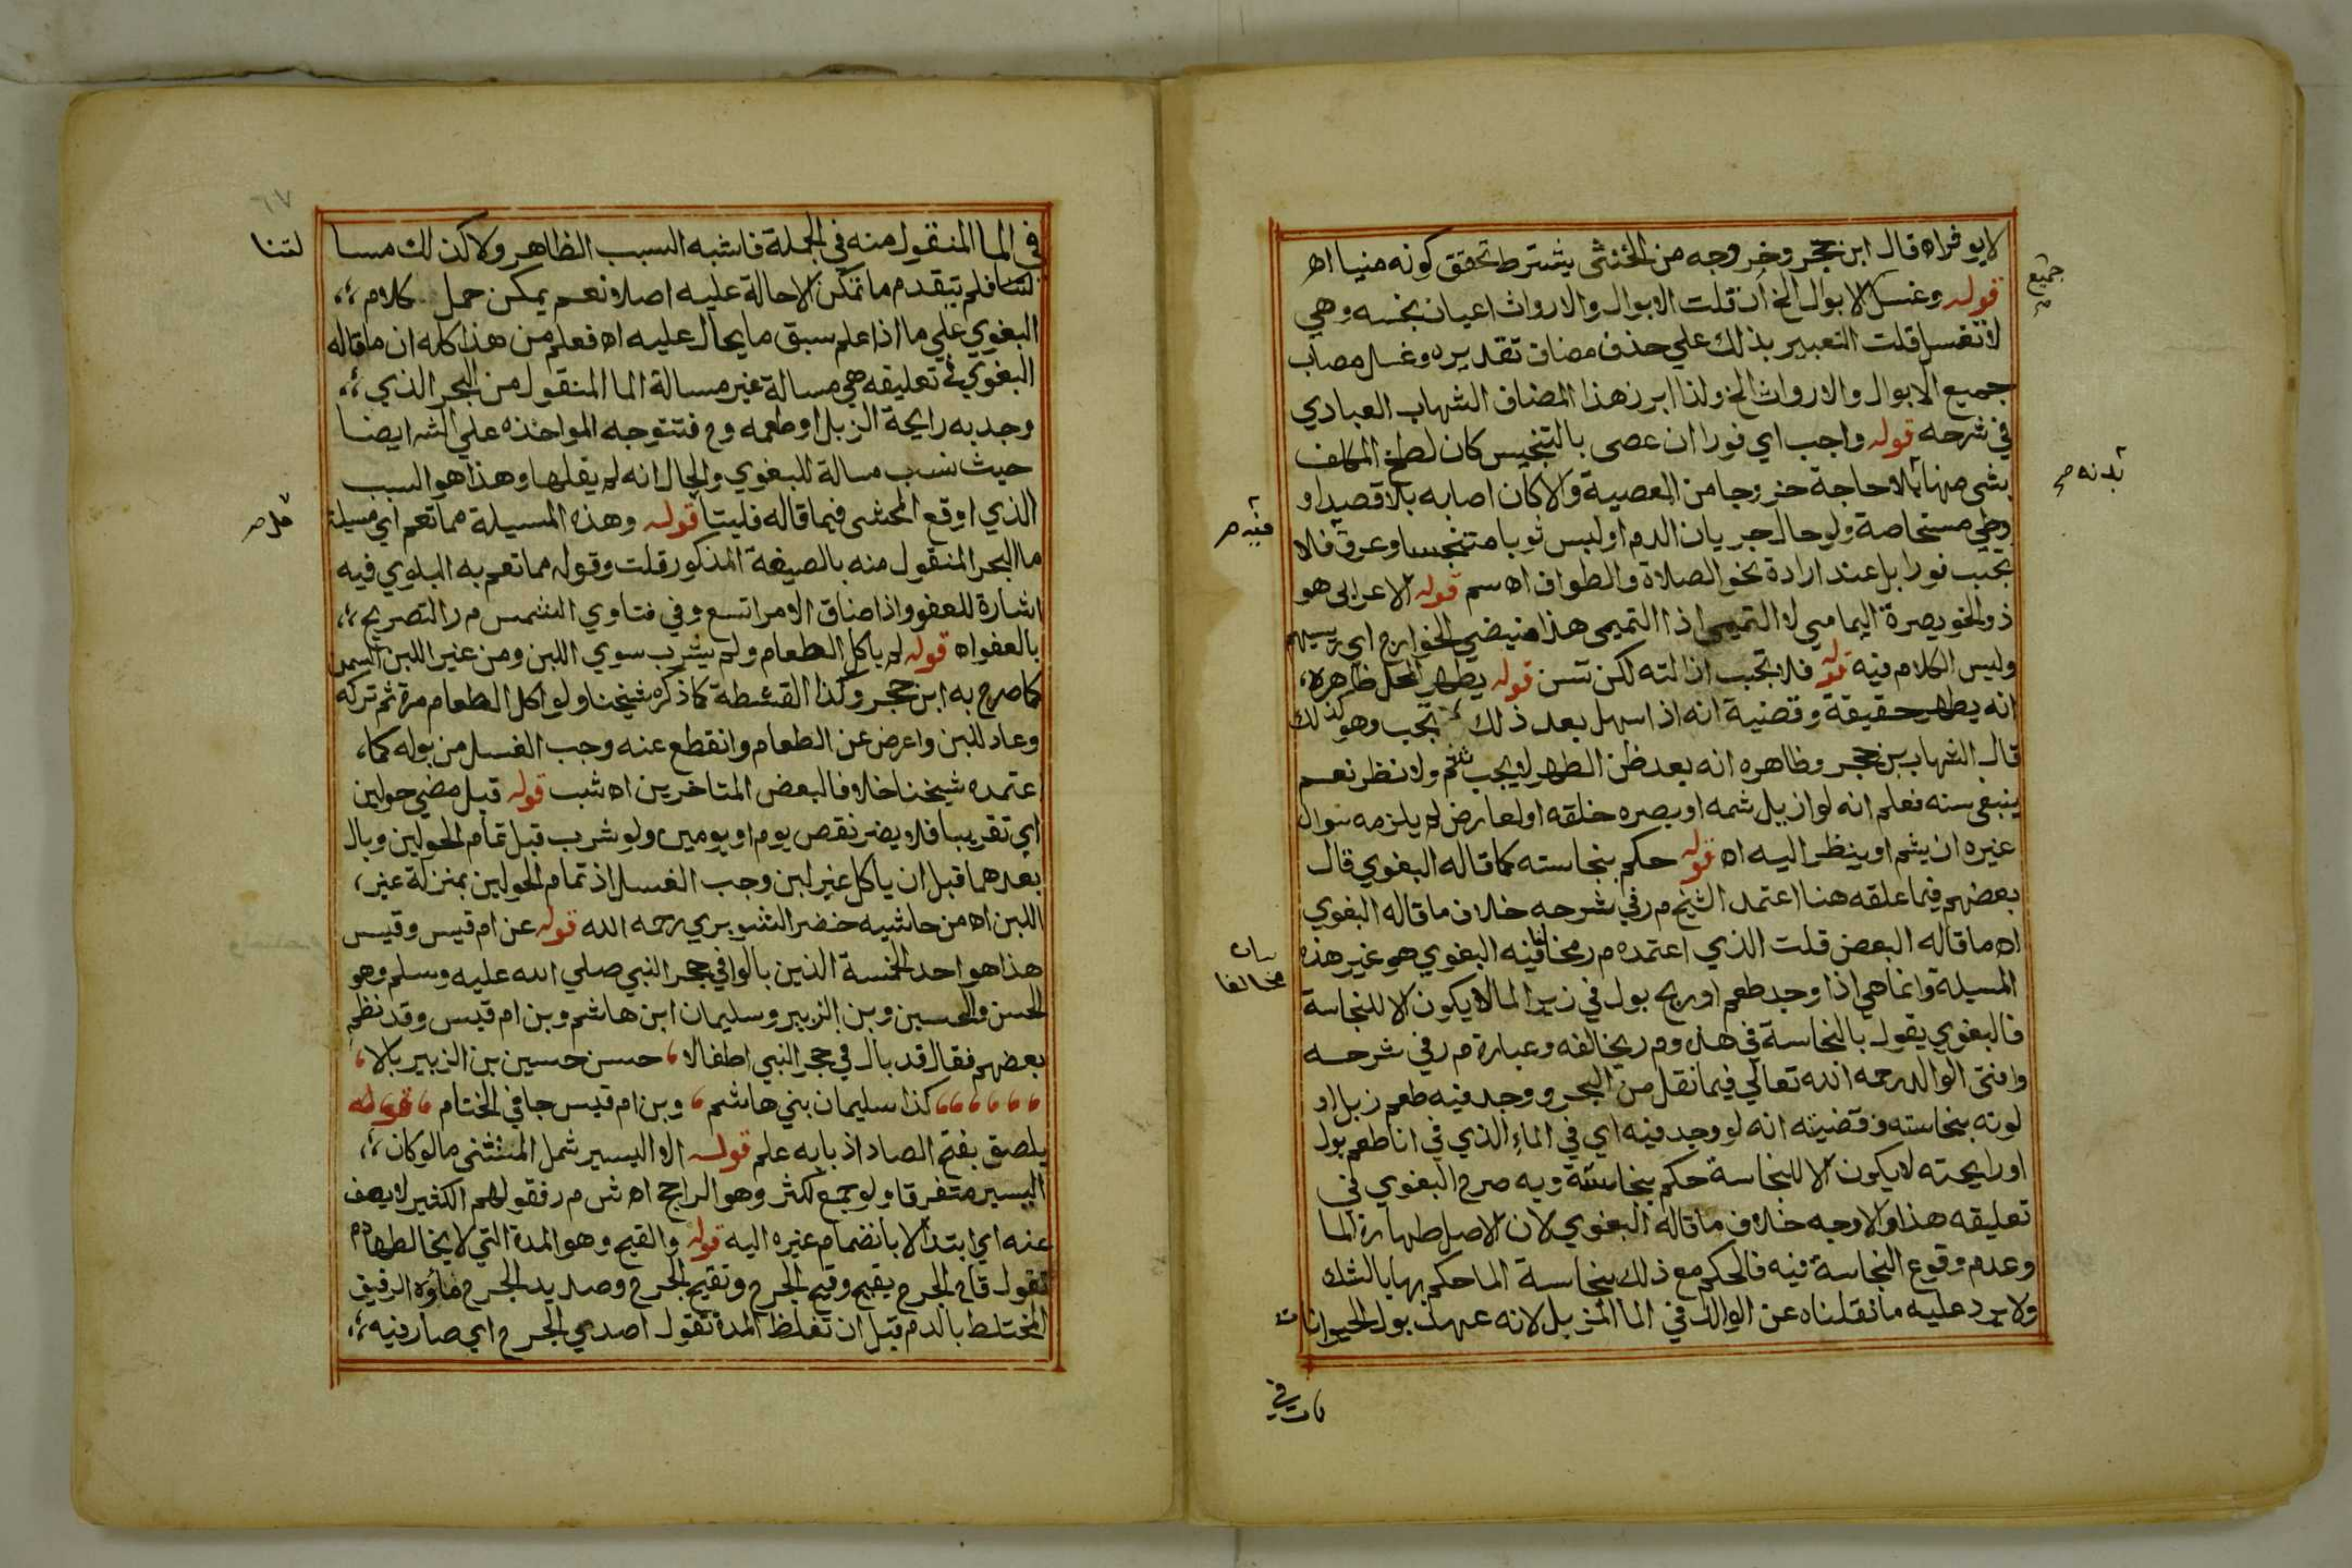 لا يوفراه قال ابن حجر وخروجه من الخنثى يشترط تحقق كونه منيا اه
قوله وغسل الابوال الخ ان قلت الابوال والارواث اعيان نجسه وهي
لا تغسل قلت التعبير بذلك علي حذف مضاف تقديره وغسل مصاب
جميع
جميع الابوال والارواث الخ ولذا ابرز هذا المضاف الشهاب العبادي
في شرحه قوله واجب اي فورا ان عصى بالتنجيس كان لطخ المكلف
بدنه صح
بشى منها بلا حاجة خروجا من المعصية والا كان اصابه بلا قصد او
وطي مستحاصة ولو حال جريان الدم او لبس ثوبا متنجسا وعرق فلا
فيه صح
يجب فورا بل عند ارادة نحو الصلاة والطواف اه سم قوله الاعرابى هو
ذو الخويصرة اليمامي لا التميمي اذا التميمى هذا ضيضي الخوارج اي رييسهم
وليس الكلام فيه قوله فلا تجب ازالته لكن تسن قوله يطهر المحل ظاهره
انه يطهر حقيقة وقضية انه اذا سهل بعد ذلك لا تجب وهو كذلك
قال الشهاب بن حجر وظاهره انه بعد ظن الطهر لا يجب شم ولا نظر نعم
ينبغي سنه فعلم انه لو ازيل شمه او بصره خلقه او لعارض لم يلزمه سوال
غيره ان يشم او ينظر اليه اه قوله حكم بنجاسته كما قاله البغوي قال
بعضهم فيما علقه هنا اعتمد الشيخ م ر في شرحه خلاف ما قاله البغوي
اه ما قاله البعض قلت الذي اعتمده م ر مخالفا فيه البغوي هو غير هذه
بيان
مخالفا
المسيلة وانما هي اذا وجد طعم او ريح بول في زير الما لا يكون الا للنجاسة
فالبغوي يقول بالنجاسة في هذه وم ر يخالفه وعبارة م ر في شرحه
وافتى الوالد رحمه الله تعالي فيما نقل من البحر ووجد فيه طعم زبل او
لونه بنجاسته وقضيته انه لو وجد فيه اي في الماء الذي في انا طعم بول
او رايحته لا يكون الا للنجاسة حكم بنجاسته وبه صرح البغوي في
تعليقه هذا والاوجه خلاف ما قاله البغوي لان الاصل طهارة الما
وعدم وقوع النجاسة فيه فالحكم مع ذلك بنجاسة الما حكم بها بالشك
ولا يرد عليه ما نقلناه عن الوالد في الما المزبل لانه عهد بول الحيوانات
ات في
٦٧
في الما المنقول منه في الجملة فاشبه السبب الظاهر ولا كذلك مسا
لتنا
لتنا فلم يتقدم ما تمكن الاحالة عليه اصلا نعم يمكن حمل كلام
البغوي علي ما اذا علم سبق ما يحال عليه اه فعلم من هذا كله ان ما قاله
البغوي في تعليقه هي مسالة غير مسالة الما المنقول من البحر الذي
وجد به رايحة الزبل او طعمه وح فتتوجه المواخذه علي الشه ايضا
حيث نسب مسالة للبغوي والحال انه لم يقلها وهذا هو السبب
الذي اوقع المحشى فيما قاله فليتا قوله وهذه المسيلة مما تعم اي مسيلة
مل صح
ما البحر المنقول منه بالصيغة المذكور قلت وقوله مما تعم به البلوي فيه
اشارة للعفو واذا ضاق الامر اتسع وفي فتاوي الشمس م ر التصريح
بالعفو اه قوله لم ياكل الطعام ولم يشرب سوي اللبن ومن غير اللبن السمن
كما صرح به ابن حجر وكذا القشطة كما ذكره شيخنا ولو اكل الطعام مرة ثم تركه
وعاد للبن واعرض عن الطعام وانقطع عنه وجب الغسل من بوله كما
اعتمده شيخنا خلافا لبعض المتاخرين اه شب قوله قبل مضي حولين
اي تقريبا فلا يضر نقص يوم او يومين ولو شرب قبل تمام الحولين وبال
بعدهما قبل ان ياكل غير لبن وجب الغسل اذ تمام الحولين بمنزلة غير
اللبن اه من حاشيه خضر الشوبري رحمه الله قوله عن ام قيس وقيس
هذا هو احد الخمسة الذين بالوا في حجر النبي صلي الله عليه وسلم وهو
الحسن والحسين وبن الزبير وسليمان ابن هاشم وبن ام قيس وقد نظم
بعضهم فقال قد بال في حجر النبي اطفالا ، حسن حسين بن الزبير بالا ،
كذا سليمان بني هاشم ، وبن ام قيس جا في الختام ، قوله
يلصق بفتح الصاد اذ بابه علم قوله الا اليسير شمل المستثنى ما لو كان
اليسير متفرقا ولو جمع لكثر وهو الراجح اه ش م ر فقولهم الكثير لا يعف
عنه اي ابتدا لا بانضمام غيره اليه قوله والقيح وهو المدة التي لا يخالطها دم
تقول قاح الجرح يقيح وقيح الجرح وتقيح الجرح وصديد الجرح ماؤه الرقيق
المختلط بالدم قبل ان تغلظ المدة تقول اصدي الجرح اي صار فيه